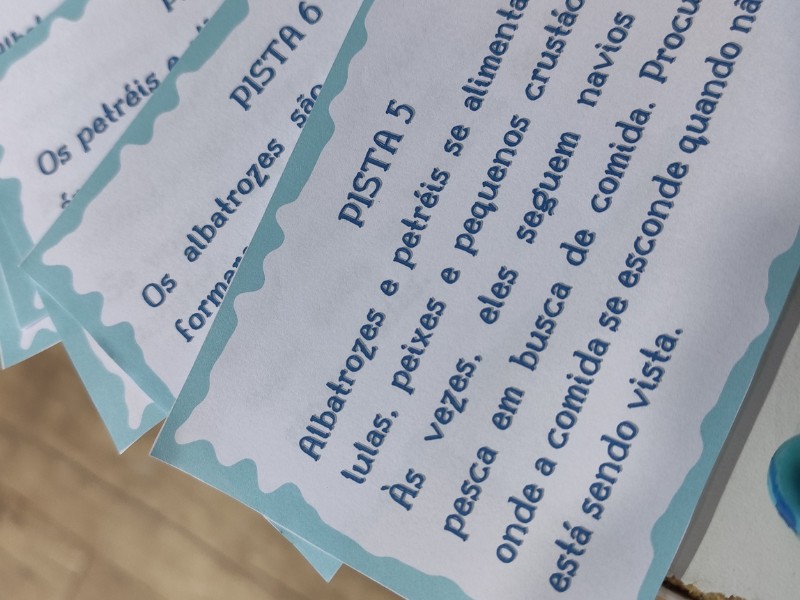 PISTA 5
Albatrozes e petréis se
lulas, peixes e pequenos
Às vezes, eles seguem navios
pesca em busca de comida.
onde a comida se esconde quando
está sendo vista.
PISTA 6
Os albatrozes são
Os petréis e